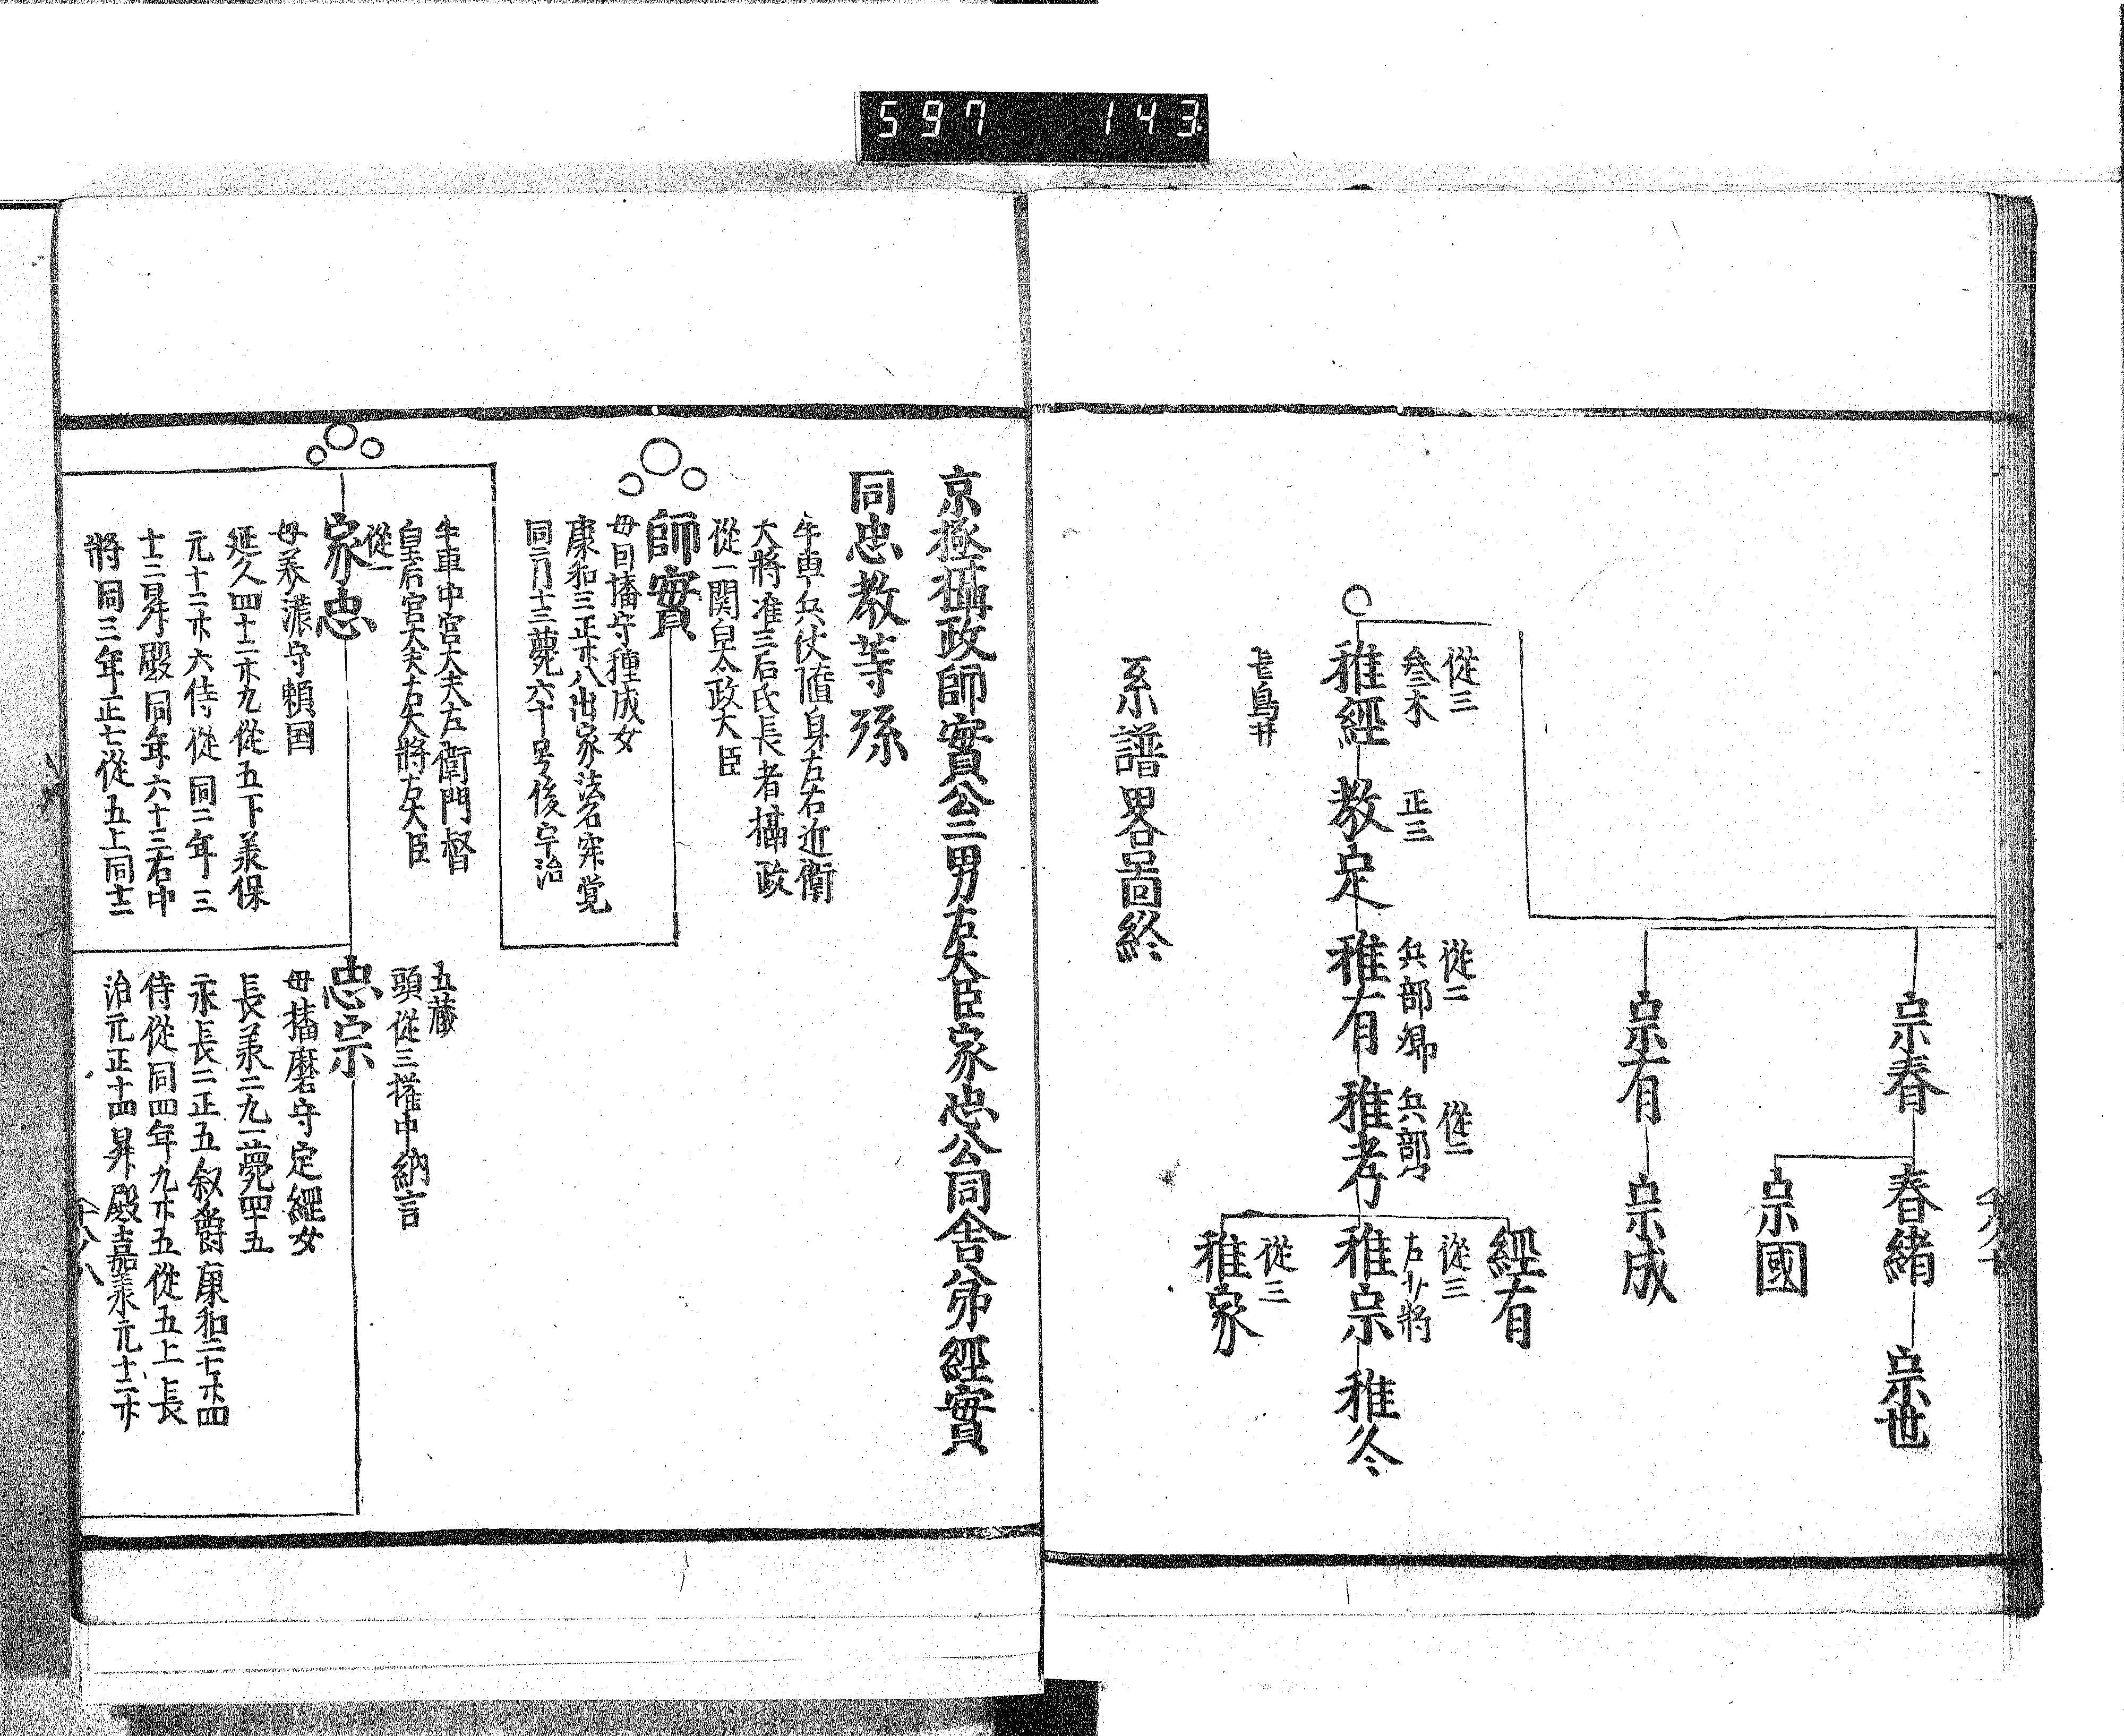 597 143
宗春
春緒
宗世
宗國
宗有
宗成
從三
叅木
雅經
正三
教定
從二
兵部卿
雅有
從二
兵部
雅孝
經有
從三
左少將
雅宗
雅冬
從三
雅家
系譜畧啚終
京極攝政師實公二男左大臣家忠公同舍弟經實
同忠教等孫
牛車兵仗隨身左右近衛
大將准三后氏長者攝政
從一関白太政大臣
師實
康和三正廿八出家法名
同二月十三薨六十号後宇治
牛車中宮大夫左衛門督
皇后宮大夫右大將左大臣
從一
家忠
母美濃守頼国
延久四十二廿九從五下
元十二廿六侍從同二年三
十二昇殿同年六十三右中
將同三年正七從五上同十二
五蔵
頭從三權中納言
忠宗
母播磨守定經女
長承二九一薨四十五
永長二正五叙爵康和二七廿四
侍從同四年九廿五從五上長
治元正十四昇殿嘉承元十二廿